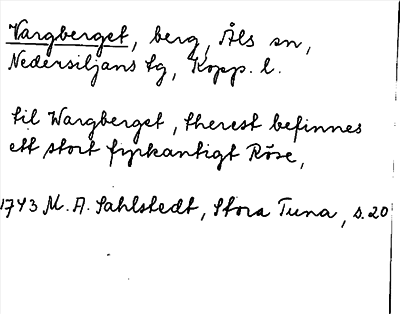 Vargberget, berg, Åls sn,
Nedersiljans tg, Kopp. l.
til Wargberget, therest befinnes
ett stort fyrkantigt Röse,
1743 M. A. Sahlstedt, Stora Tuna, s. 20